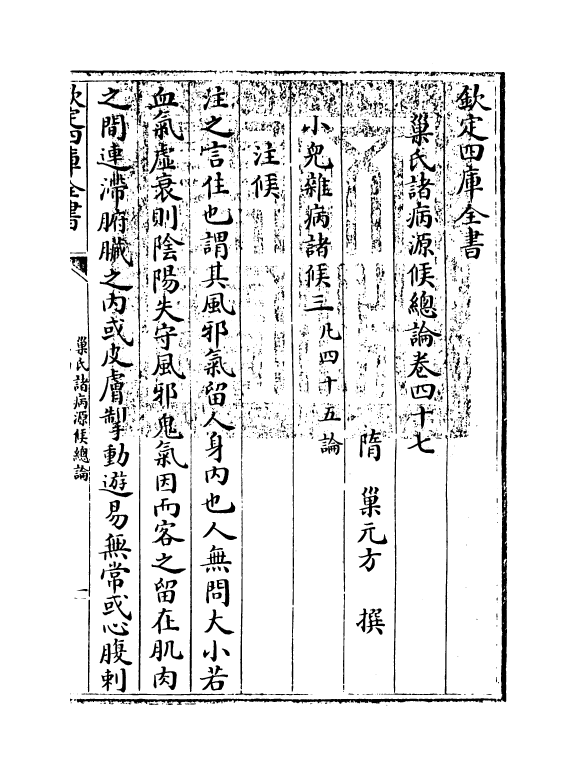 欽定四庫全書
巢氏諸病源候總論卷四十七
隋 巢元方 撰
小兒雜病諸候三凡四十五論
注候
注之言住也謂其風邪氣留人身内也人無問大小若
血氣虛衰則陰陽失守風邪鬼氣因而客之留在肌肉
之間連滯腑臟之内或皮膚掣動遊易無常或心腹刺
欽定四庫全書
巢氏諸病源候總論
一